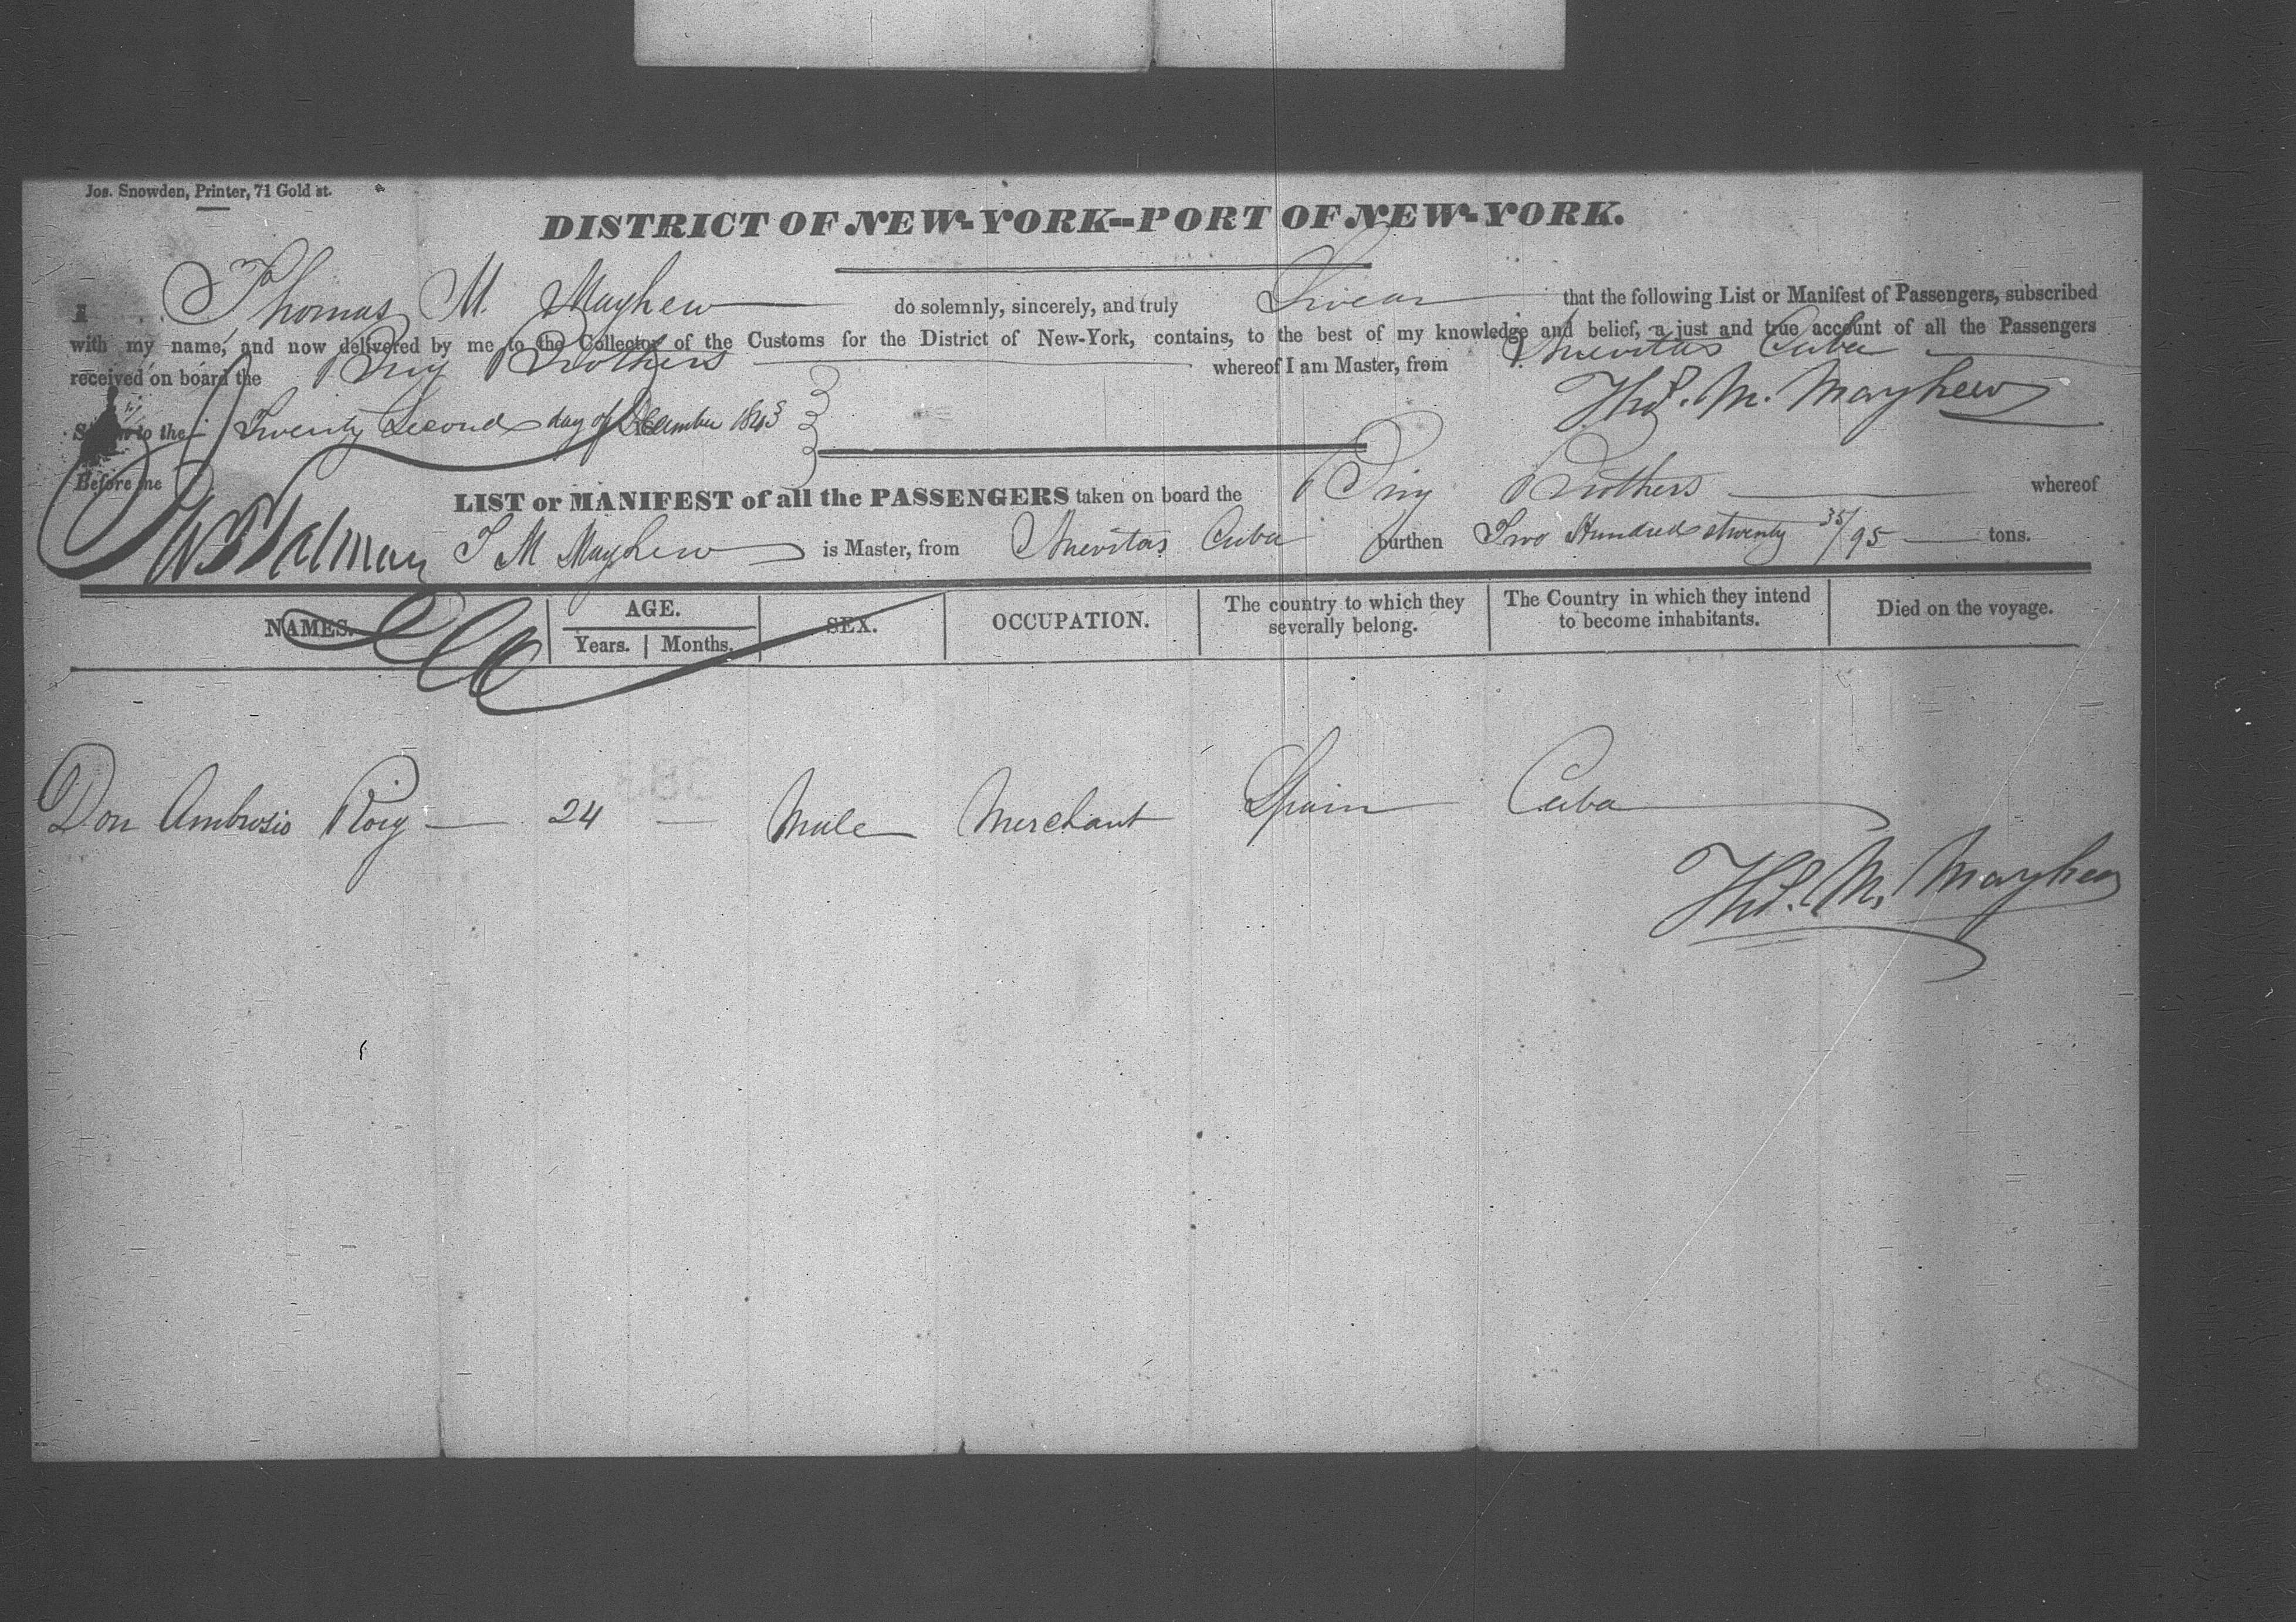 Jos. Snowden, Printer, 71 Gold st.
DISTRICT OF NEW-YORK--PORT OF NEW-YORK.
I Thomas M. Mayhew do solemnly, sincerely, and truly Swear that the following List or Manifest of Passengers, subscribed
with my name, and now delivered by me to the Collector of the Customs for the District of New-York, contains, to the best of my knowledge and belief, a just and true account of all the Passengers
received on board the Brig Brothers whereof I am Master, from Nuevitas Cuba
Thos. M. Mayhew
Sworn to the Twenty Second day of December 1843
Before me
LIST or MANIFEST of all the PASSENGERS taken on board the Brig Brothers whereof
T M Mayhew is Master, from Nuevitas Cuba burthen Two Hundred & twenty 35/95 tons.
NAMES. AGE. SEX. OCCUPATION. The country to which they severally belong. The Country in which they intend to become inhabitants. Died on the voyage.
Years. Months.
Don Ambrosio Roig 24 Male Merchant Spain Cuba
Thos. M. Mayhew